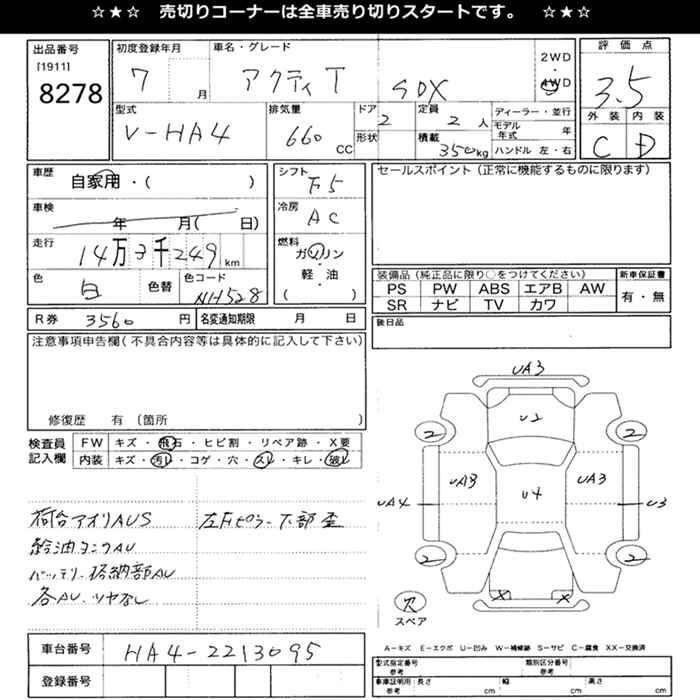 ☆★☆ 売切りコーナーは全車売り切りスタートです。 ☆★☆
出品番号 初度登録年月 車名・グレード 2WD 評価点
[1911]
8278 7 月 アクティT SDX ・ 4WD 3.5
型式 排気量 ドア 定員 ディーラー・並行 外装 内装
V-HA4 660 CC 2 2人 モデル年式 年 C D
形状 積載 350kg ハンドル 左・右
車歴 自家用・( ) シフト F5 セールスポイント(正常に機能するものに限ります)
車検 年 月( 日) 冷房 AC
走行 14万3千249km 燃料 ガソリン・軽・油 ( )
色 白 色替 色コード NH528
装備品(純正品に限り○をつけてください) 新車保証書
PS PW ABS エアB AW 有・無
SR ナビ TV カワ
R券 3560 円 名変通知期限 月 日 後日品
注意事項申告欄(不具合内容等は具体的に記入して下さい)
修復歴 有〔箇所 〕
検査員 FW キズ・飛石・ヒビ割・リペア跡・X要
記入欄 内装 キズ・汚レ・コゲ・穴・スレ・キレ・破レ
荷台アオリAUS 左右ピラー下部歪
給油タンクAU
バッテリー格納部AU
各AU、ツヤなし
UA3
U2
2 2
UA3 UA3
UA4 U4 U3
2 2
X X
穴
スペア
A−キズ E−エクボ U−凹み W−補修跡 S−サビ C−腐食 XX−交換済
車台番号 HA4-2213095
登録番号
型式指定番号 参考 類別区分番号 参考
車庫証明用 参考 長さ cm 幅 cm 高さ cm